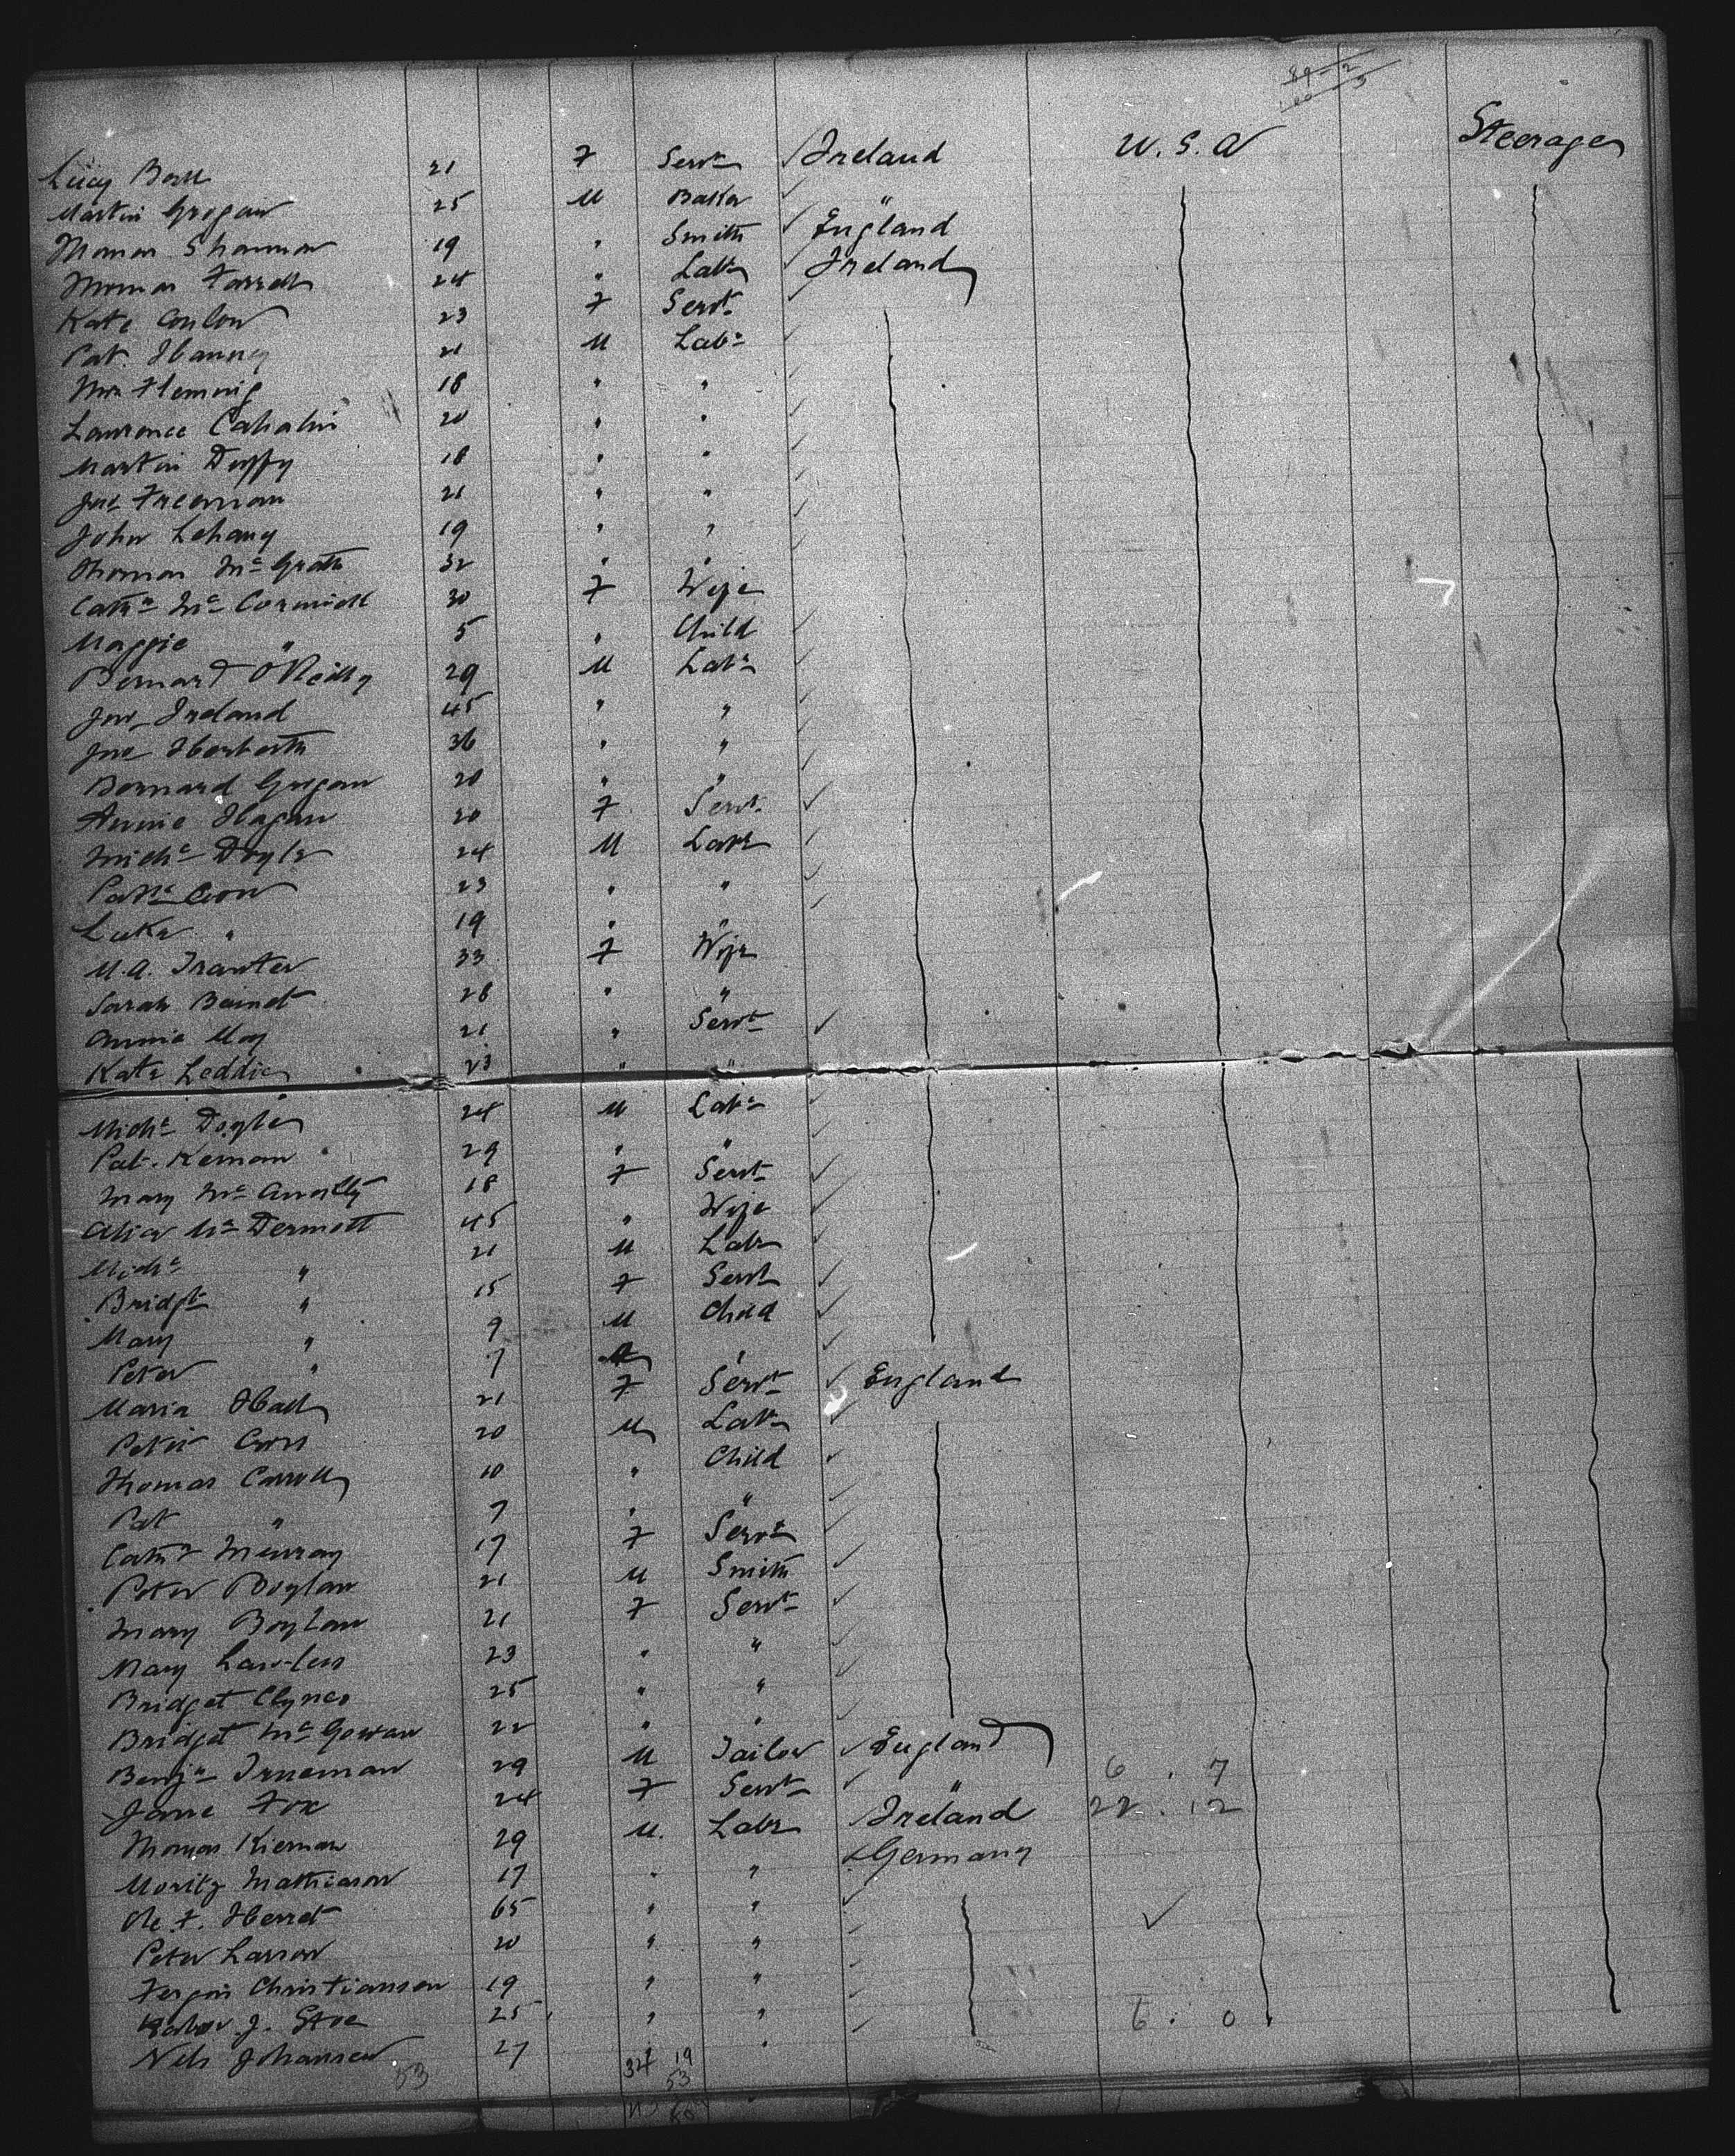 89-2
100-3
Lucy 21 F Servt Ireland U.S.A Steerage
Martin Grogan 25 M Baker "
Thomas Shannon 19 " Smith England
Thomas Farrell 24 " Labr Ireland
Kate Conlon 23 F Servt
Pat. Hanney 21 M Labr
Wm Fleming 18 " "
Lawrence Cahalin 20 " "
Martin Duffy 18 " "
Jno Freeman 21 " "
John Lehany 19 " "
Thomas Mc Grath 32 " "
Cathn Mc Cormick 30 F Wife
Maggie " 5 " Child
Bernard O'Reilly 29 M Labr
Jno Ireland 45 " "
Jno 36 " "
Bernard Grogan 20 " "
Annie Hagan 20 F Servt
Michl Doyle 24 M Labr
Patk 23 " "
Luke " 19 " "
M.A. Tranter 33 F Wife
Sarah 28 " "
Annie May 21 " Servt
Kate Leddie 23 " "
Michl Doyle 24 M Labr
Pat. Kernan 29 " "
Mary Mc 18 F Servt
Alice Mc Dermott 45 " Wife
Michl " 21 M Labr
Bridgt " 15 F Servt
Mary " 9 M Child
Peter " 7 "
Maria Hall 21 F Servt England
Peter 20 M Labr
Thomas Carroll 10 " Child
Pat " 7 " "
Cathn Murray 17 F Servt
Peter Boylan 21 M Smith
Mary Boylan 21 F Servt
Mary Lawless 23 " "
Bridget Clynes 25 " "
Bridget Mc Gowan 22 " "
Benjn Trueman 29 M Tailor England
Jane Fox 24 F Servt " 6 . 7
Thomas Kiernan 29 M. Labr Ireland 22 . 12
Moritz Mathiason 17 " " Germany
65 " "
Peter Larson 20 " "
Christiansen 19 " "
25 " "
Nels Johansen 27 " " 6 . 0
53 34 19
53